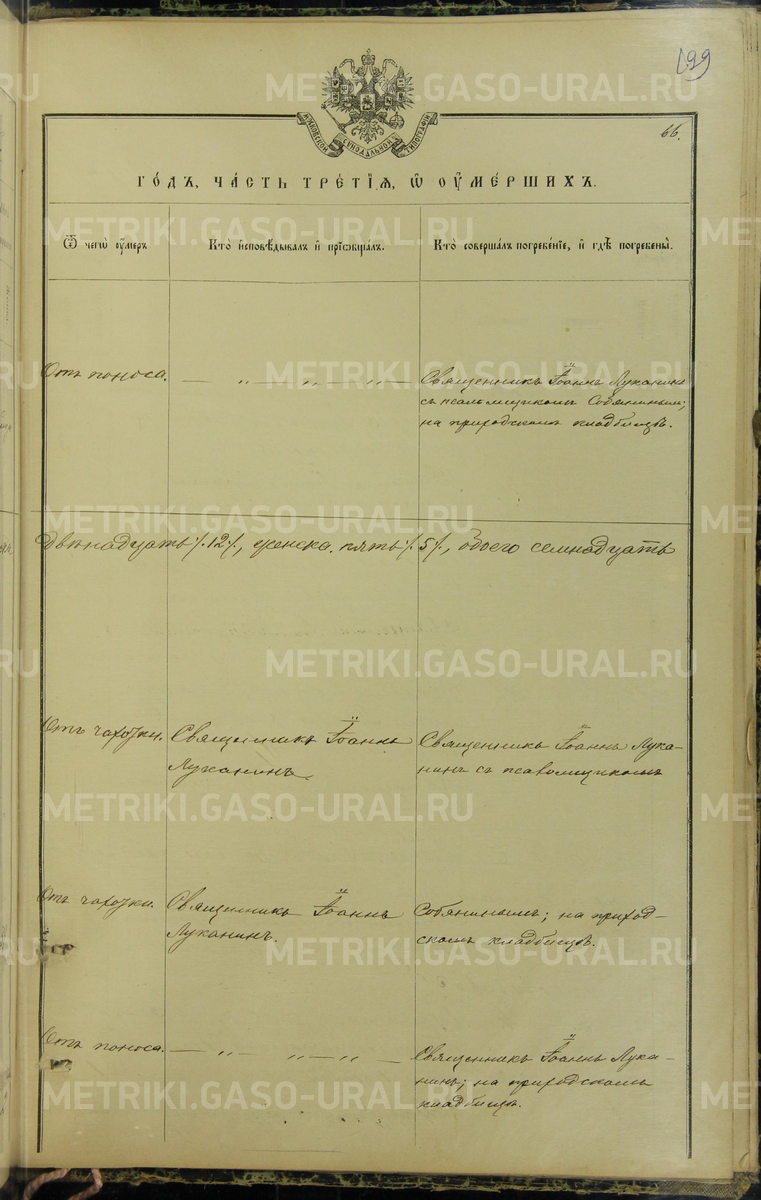 199
66.
МОСКОВСКОЙ СѶНОДАЛЬНОЙ ТИПОГРАФІИ
ГО́ДЪ, ЧА́СТЬ ТРЕ́ТІѦ, Ѡ҆ ОУ҆МЕ́РШИХЪ.
Ѿ чегѡ̀ оу҆́меръ
Кто̀ и҆сповѣ́дывалъ и҆ прїѡбща́лъ.
Кто̀ соверша́лъ погребе́нїе, и҆ гдѣ̀ погребены̀.
Отъ поноса.
— „ — „ — „ —
Священникъ Іоаннъ Луканинъ
съ псаломщикомъ Собянинымъ;
на приходскомъ кладбищѣ.
двѣнадцать /.12./, женска. пять /.5./, обоего семнадцать
Отъ чахотки.
Священникъ Іоаннъ
Луканинъ.
Священникъ Іоаннъ Лука-
нинъ съ псаломщикомъ
Отъ чахотки.
Священникъ Іоаннъ
Луканинъ.
Собянинымъ; на приход-
скомъ кладбищѣ.
Отъ поноса.
— „ — „ — „ —
Священникъ Іоаннъ Лука-
нинъ; на приходскомъ
кладбищѣ.
METRIKI.GASO-URAL.RU